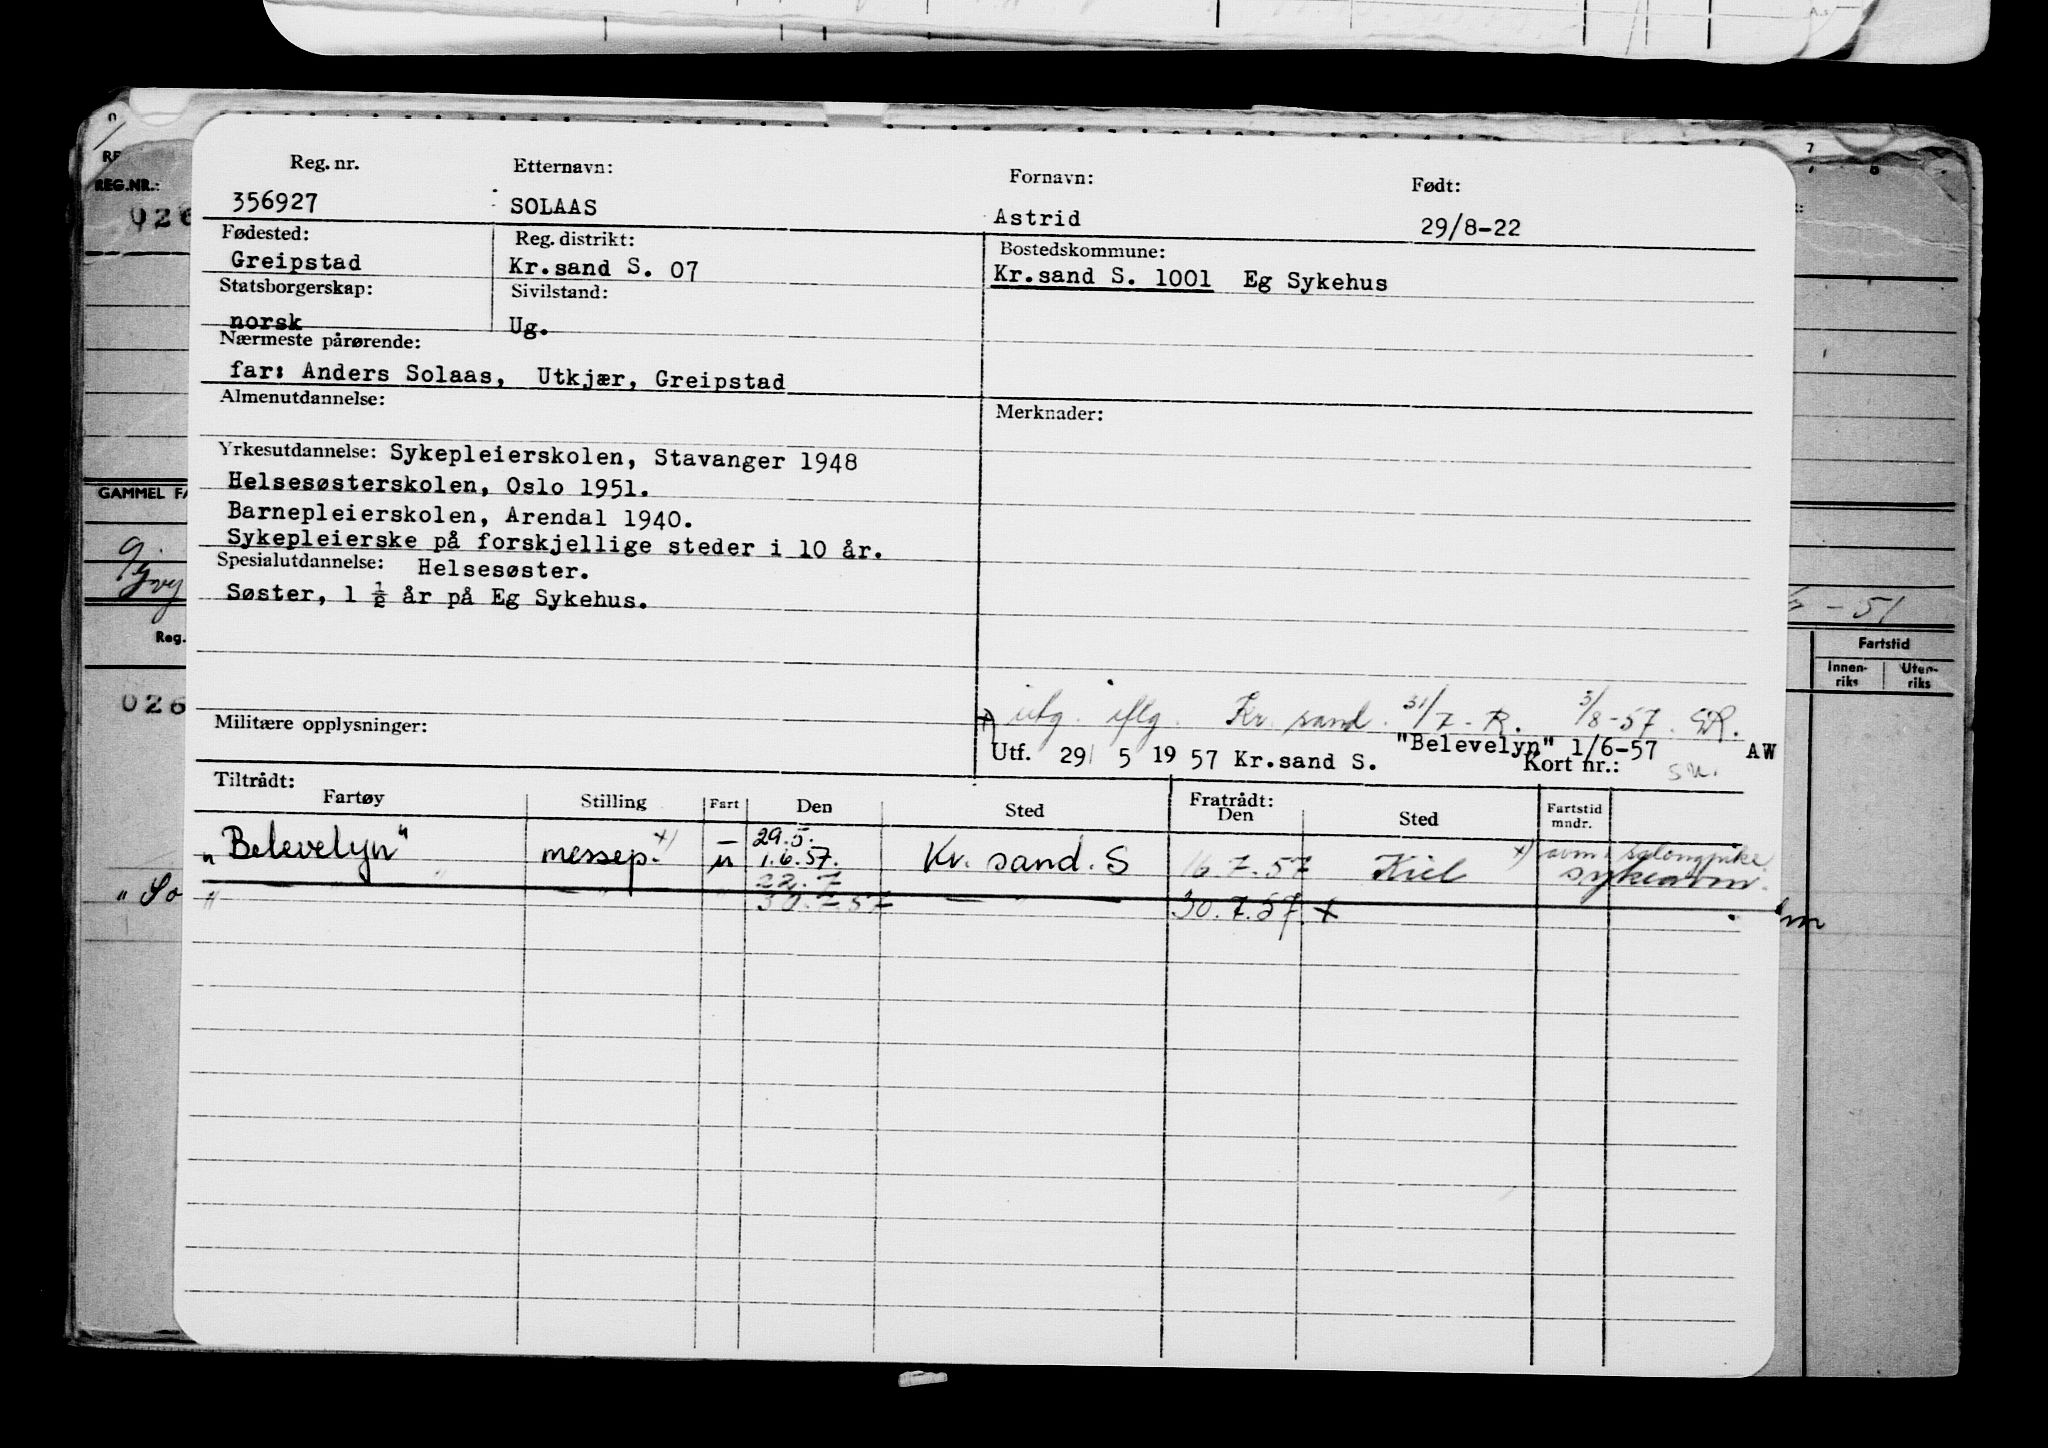 Reg. nr. Etternavn: Fornavn: Født:
356927 SOLAAS Astrid 29/8-22
Fødested: Reg. distrikt: Bostedskommune:
Greipstad Kr.sand S. 07 Kr.sand S. 1001 Eg Sykehus
Statsborgerskap: Sivilstand:
norsk Ug.
Nærmeste pårørende:
far: Anders Solaas, Utkjær, Greipstad
Almenutdannelse: Merknader:
Yrkesutdannelse: Sykepleierskolen, Stavanger 1948
Helsesøsterskolen, Oslo 1951.
Barnepleierskolen, Arendal 1940.
Sykepleierske på forskjellige steder i 10 år.
Spesialutdannelse: Helsesøster.
Søster, 1 ½ år på Eg Sykehus.
iflg. Kr. sand. 31/7 - R. 3/8-57.
Militære opplysninger:
"Belevelyn" 1/6-57 AW
Utf. 29 5 19 57 Kr.sand S. Kort nr.:
Tiltrådt: Fratrådt:
Fartøy Stilling Fart Den Sted Den Sted Fartstid mndr.
29.5.
"Belevelyn" messep. x) u 1.6.57. Kr. sand. S 16.7.57 Kiel x)
22.7
" 30.7.57 30.7.57. x
REG.NR.:
026
GAMMEL FA
- 51
Reg.
Fartstid
Innen-riks Uten-riks
026
"So